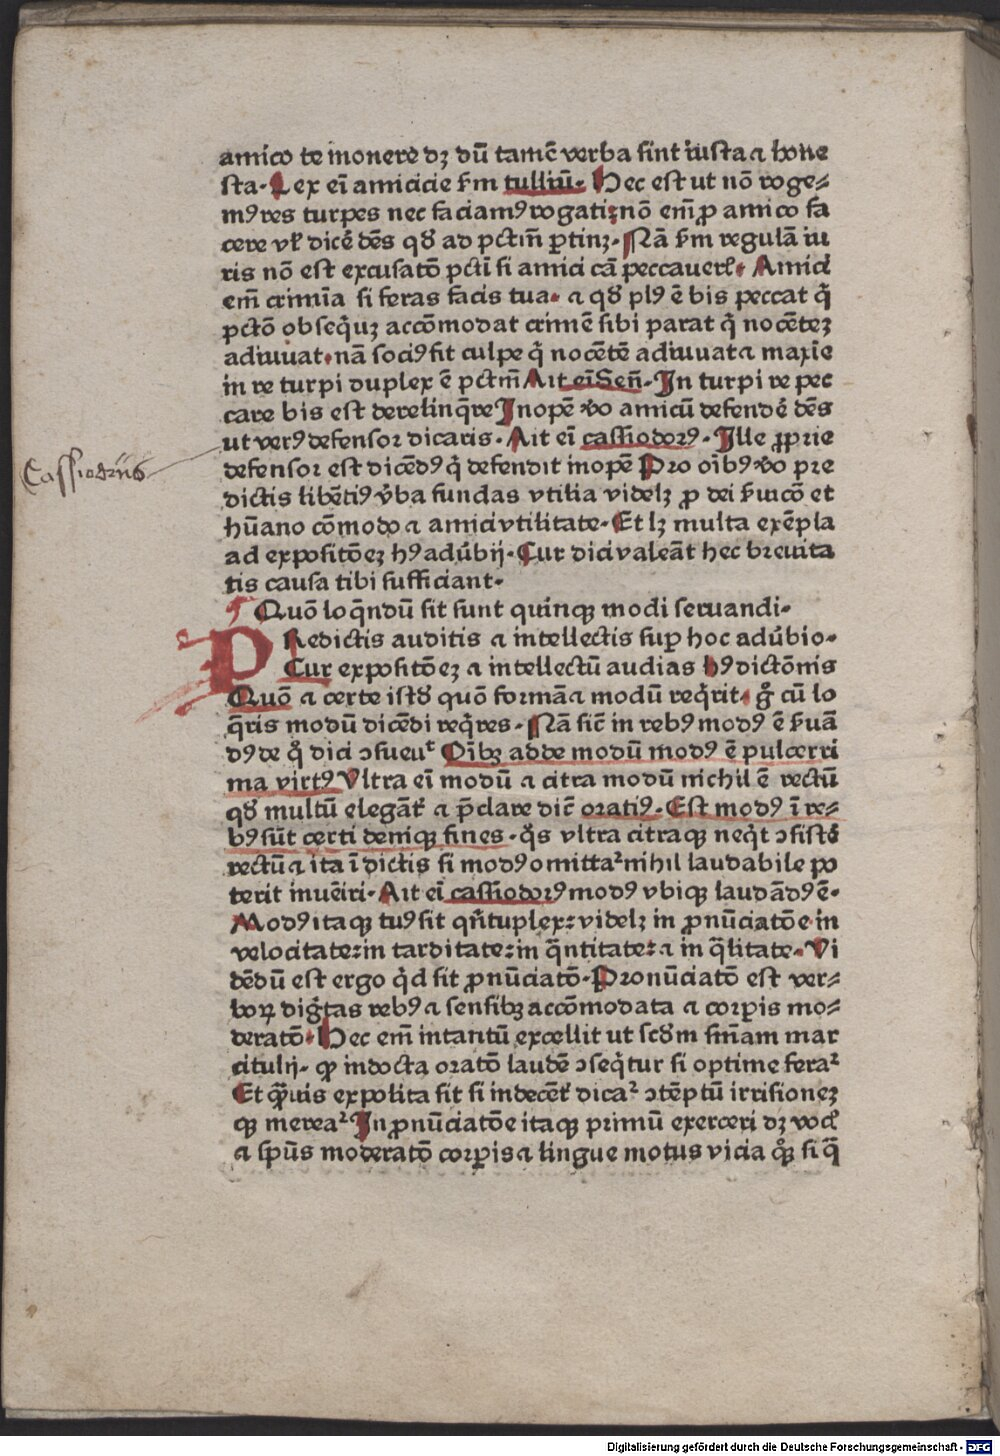 amico te monere dꝫ dū tamē verba sint iusta ⁊ hone
sta. Lex eī amicicie ẜm tulliū. Hec est ut nō roge⸗
mꝰ res turpes nec faciamꝰ rogati; nō em̄ ꝓ amico fa
cere vl̓ dicē dēs qđ ad pctm̄ ꝑtinꝫ. Nā ẜm regulā iu
ris nō est excusatō pctī si amici cā peccauerꝭ. Amici
em̄ crimīa si feras facis tua. ⁊ qđ plꝰ ē bis peccat q̇
pctō obseq̇uꝫ accōmodat crimē sibi parat q̇ nocēteꝫ
adiuuat. nā sociꝰ fit culpe q̇ nocētē adiuuat ⁊ maxīe
in re turpi duplex ē pctm̄ Ait eī Sen̄. In turpi re pec
care bis est derelinq̄re Inopē ꝟo amicū defendē dēs
ut verꝰ defensor dicaris. Ait eī cassiodorꝰ. Ille ꝓprie
Cassiodorus
defensor est dicēdꝰ q̇ defendit inopē Pro oībꝰ ꝟo pre
dictis libētiꝰ v̓ba fundas vtilia videlꝫ ꝓ dei ẜuicō et
hūano cōmodo ⁊ amici vtilitate. Et lꝫ multa exēpla
ad expositōeꝫ hꝰ adūbij. Cur dici valeāt hec breuita
tis causa tibi sufficiant.
Quō loq̄ndū sit sunt quinqꝫ modi seruandi.
PRedictis auditis ⁊ intellectis suꝑ hoc adūbio.
Cur expositōeꝫ ⁊ intellectū audias hꝰ dictōnis
Quō ⁊ certe istđ quō formā ⁊ modū req̇rit. g̊ cū lo
q̄ris modū dicēdi req̇res. Nā sic̄ in rebꝰ modꝰ ē ẜuā
dꝰ de q̊ dici ↄsueuᵗ Oībꝫ adde modū modꝰ ē pulcerri
ma virtꝰ Vltra eī modū ⁊ citra modū nichil ē rectū
qđ multū elegāt̓ ⁊ p̄clare dic̄ oratiꝰ. Est modꝰ ī re⸗
bꝰ sūt certi deniqꝫ fines. q̊s vltra citraqꝫ neq̇t ↄsistē
rectū ⁊ ita ī dictis si modꝰ omittaᷣ nihil laudabile po
terit inuēiri. Ait eī cassiodorꝰ modꝰ vbiqꝫ laudādꝰ ē.
Modꝰ itaqꝫ tuꝰ sit qn̄tuplex: videlꝫ in ꝓnūciatōe in
velocitate: in tarditate: in q̄ntitate: ⁊ in q̄litate. Vi
dēdū est ergo q̇d sit ꝓnūciatō. Pronūciatō est ver⸗
borꝝ dig̓tas rebꝰ ⁊ sensibꝫ accōmodata ⁊ corꝑis mo⸗
deratō. Hec em̄ intantū excellit ut scđm sn̄iam mar
citulij. ꝙ indocta oratō laudē ↄseq̇tur si optime feraᷣ
Et q̄uis expolita sit si indecēt̓ dicaᷣ ↄtēptū irrisioneꝫ
qꝫ mereaᷣ In ꝓnūciatōe itaqꝫ primū exerceri dꝫ vocꝭ
⁊ sp̄us moderatō corꝑis ⁊ lingue motus vicia qꝫ si q̄
Digitalisierung gefördert durch die Deutsche Forschungsgemeinschaft - DFG